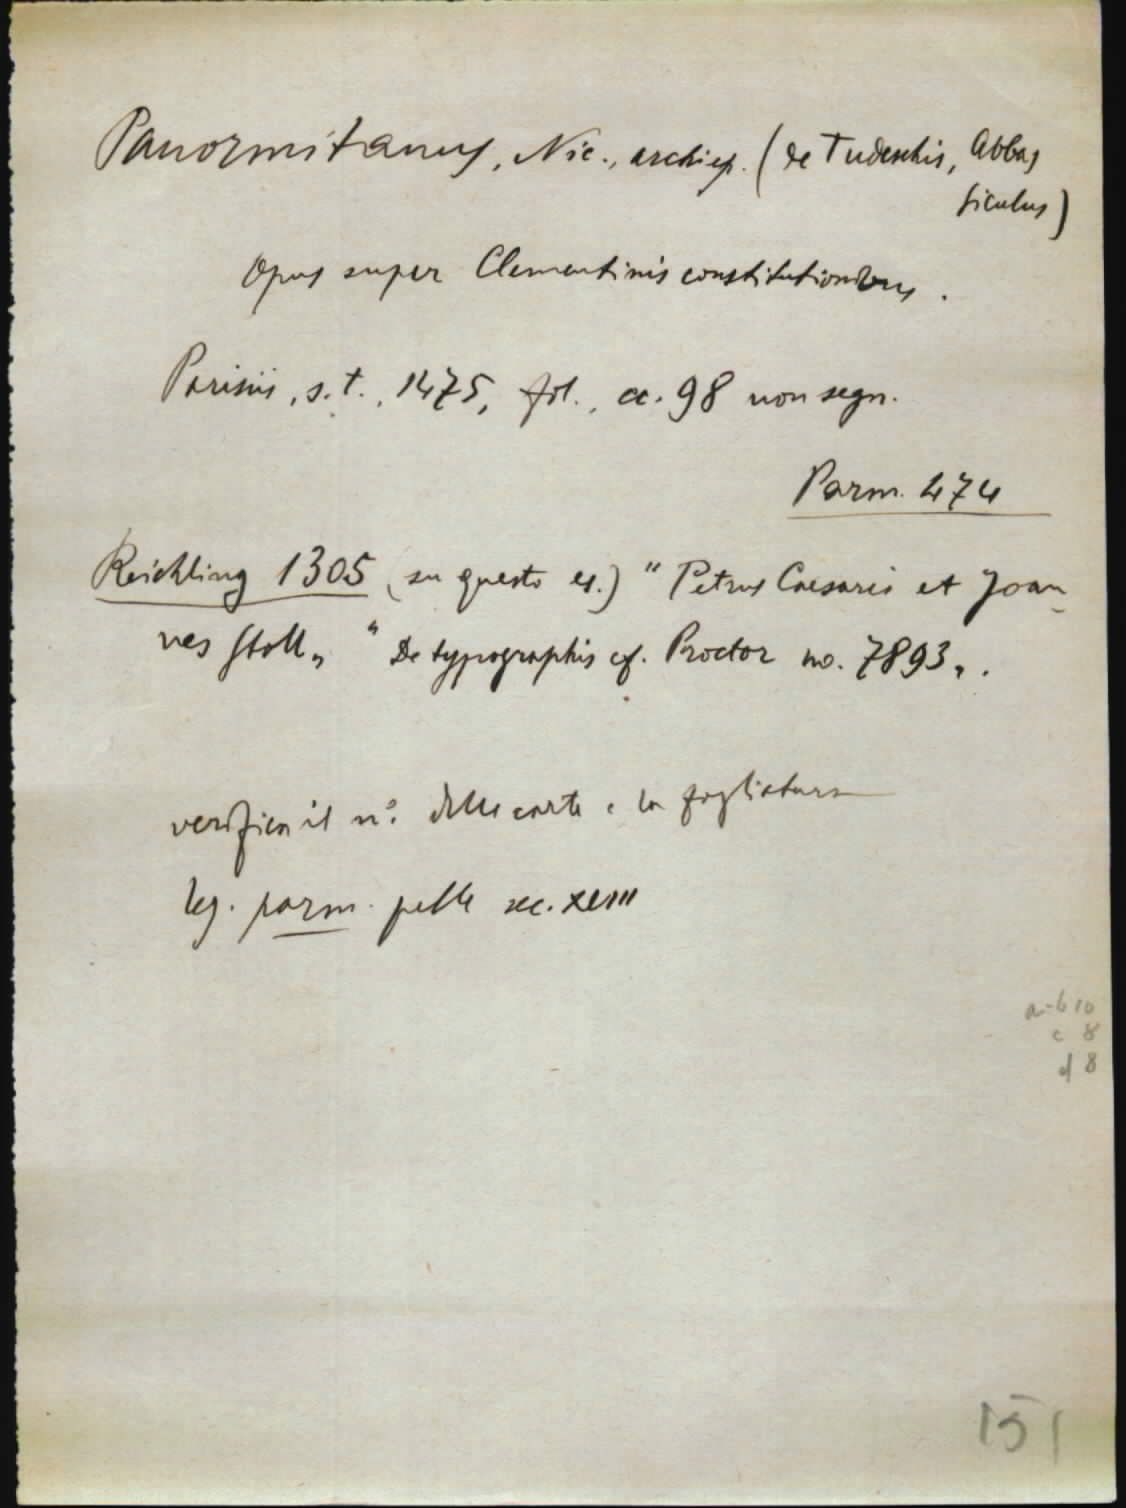 Panormitanus, Nic., archiep. (de Tudeschis, Abbas
siculus)
Opus super Clementinis constitutionibus.
Parisiis, s.t., 1475, fol., cc. 98 non segn.
Parm. 474
Reichling 1305 (su questo es.) "Petrus Caesaris et Joan-
nes Stoll„ "De typographis cf. Proctor no. 7893„.
verifica il n°: delle carte e la fogliatura
leg. parm. pelle sec. XVIII
a-b 10
c 8
d 8
151